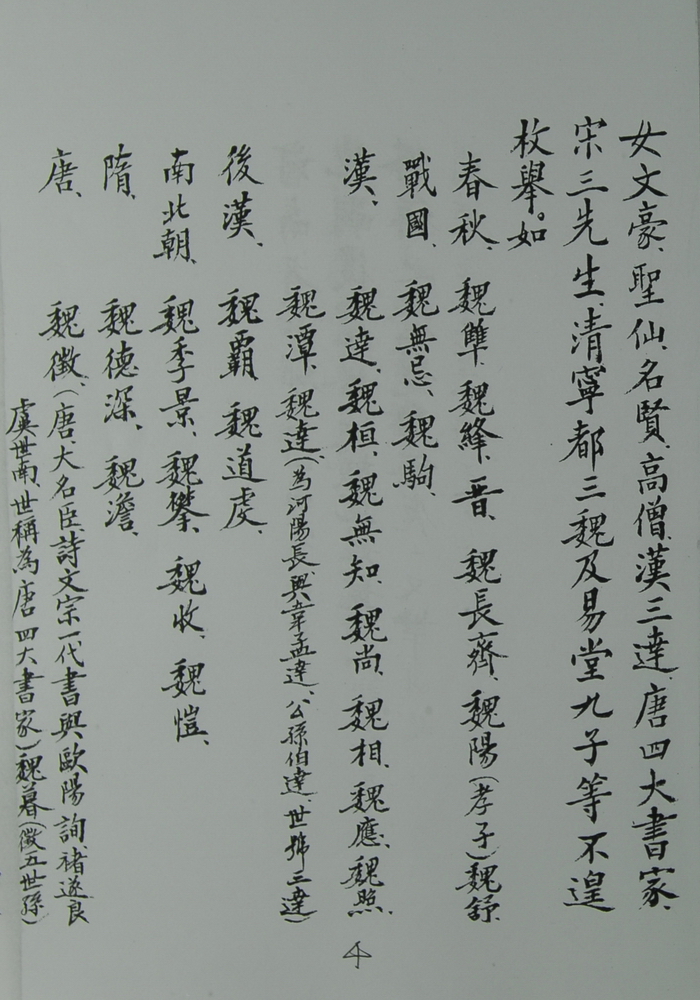 女文豪、聖仙、名賢、高僧、漢三達、唐四大書家、
宋三先生、清寧都三魏及易堂九子等不遑
枚舉。如
春秋、魏犨、魏絳、晋、魏長齊、魏陽(孝子)魏舒、
戰國、魏無忌、魏駒、
漢、魏達、魏桓、魏無知、魏尚、魏相、魏應、魏照、
魏潭、魏達(為河陽長與韋孟達、公孫伯達、世號三達)
後漢、魏霸、魏道虔、
南北朝、魏季景、魏攀、魏收、魏愷、
隋、魏德深、魏澹、
唐、魏徵、(唐、大名臣、詩文宗一代書與歐陽詢、褚遂良
虞世南、世稱為唐四大書家)魏暮(徵五世孫)